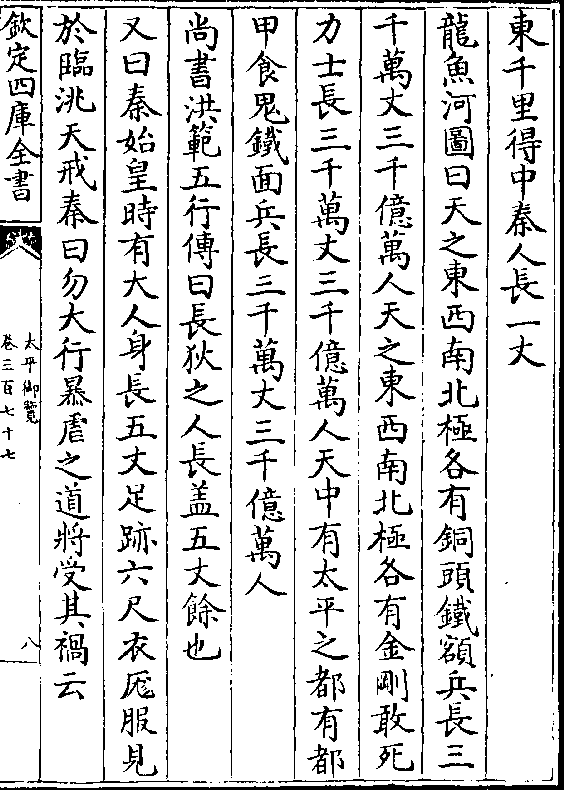 東千里得中秦人長一丈
龍魚河圖曰天之東西南北極各有銅頭鐵額兵長三
千萬丈三千億萬人天之東西南北極各有金剛敢死
力士長三千萬丈三千億萬人天中有太平之都有都
甲食鬼鐵面兵長三千萬丈三千億萬人
尚書洪範五行傳曰長狄之人長盖五丈餘也
又曰秦始皇時有大人身長五丈足跡六尺衣厐服見
於臨洮天戒秦曰勿大行暴虐之道將受其禍云
欽定四庫全書
太平御覽
卷三百七十七
八